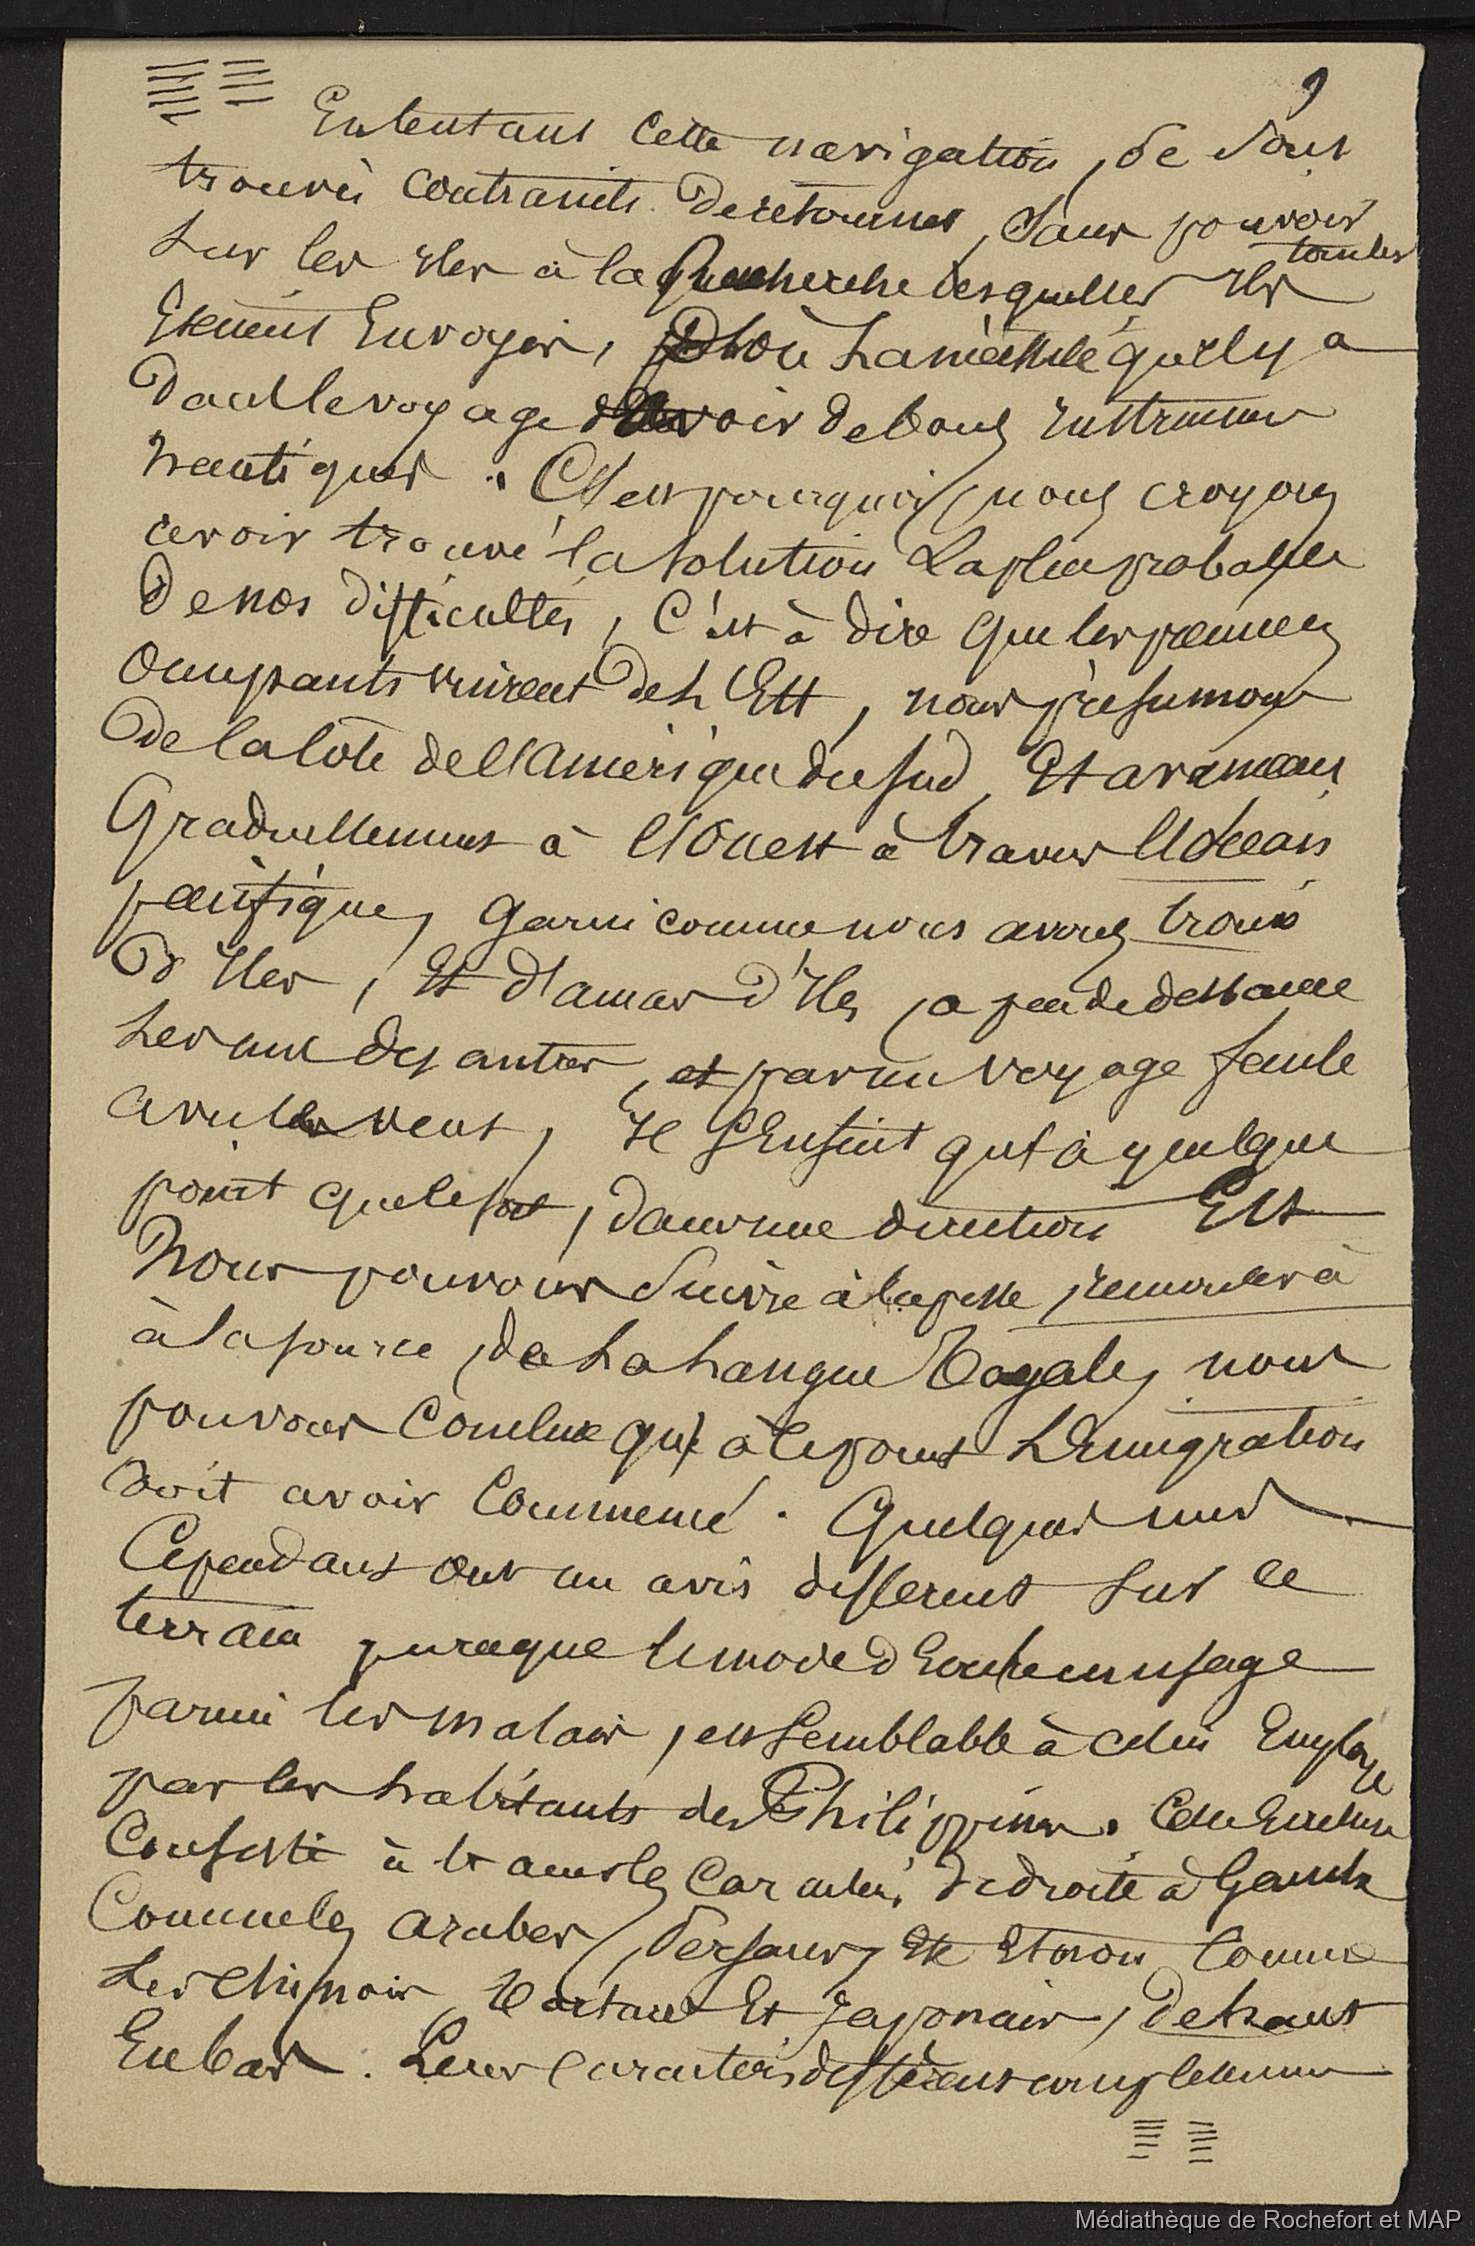 9
En tentant cette navigation, se sont
trouvés contraints de retourner, sans pouvoir
tomber
sur les Iles à la recherche desquelles Ils
Etaient Envoyés, D'où La nécessité qu'il y a
dans le voyage d'avoir de bons Instrumens
nautiques. C'est pourquoi, nous croyons
avoir trouvé la solution La plus probable
de nos difficultés, C'est à dire que les premiers
occupants vinrent de L'Est, nous présumons
de la Côte de l'Amérique du sud, Et
Graduellement à l'Ouest à travers l'Océan
pacifique, Garni comme nous avons trouvé
d'Iles, Et d'amas d'Iles, a peu de distance
Les uns des autres, et par un voyage facile
avec le vent, Il S'Ensuit qu'à quelque
point que ce soit, dans une direction Est
Nous pouvons Suivre à la piste, remonter à
à la source, de La Langue Tagale, nous
pouvons Conclure qu'à ce point L'Emigration
doit avoir Commencé. Quelques uns
Cependant ont un avis différent Sur ce
terrain, puisque le mode d'Ecriture en usage
parmi les malais, est Semblable à celui Employé
par les habitants des Philippines. Cette Ecriture
Consiste à tracer les Caractères, de droite à Gauche
Comme les arabes, Persans, Et Et non Comme
Les Chinois, Tartares Et Japonais, de haut
En bas. Leurs Caractères diffèrent complètement
Médiathèque de Rochefort et MAP